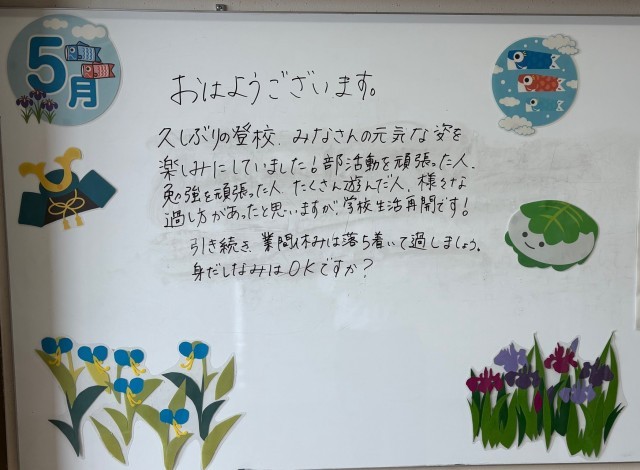 5
月
おはようございます。
久しぶりの登校、みなさんの元気な姿を
楽しみにしていました！部活動を頑張った人、
勉強を頑張った人、たくさん遊んだ人、様々な
過し方があったと思いますが、学校生活再開です！
引き続き、業間休みは落ち着いて過しましょう。
身だしなみはOKですか？